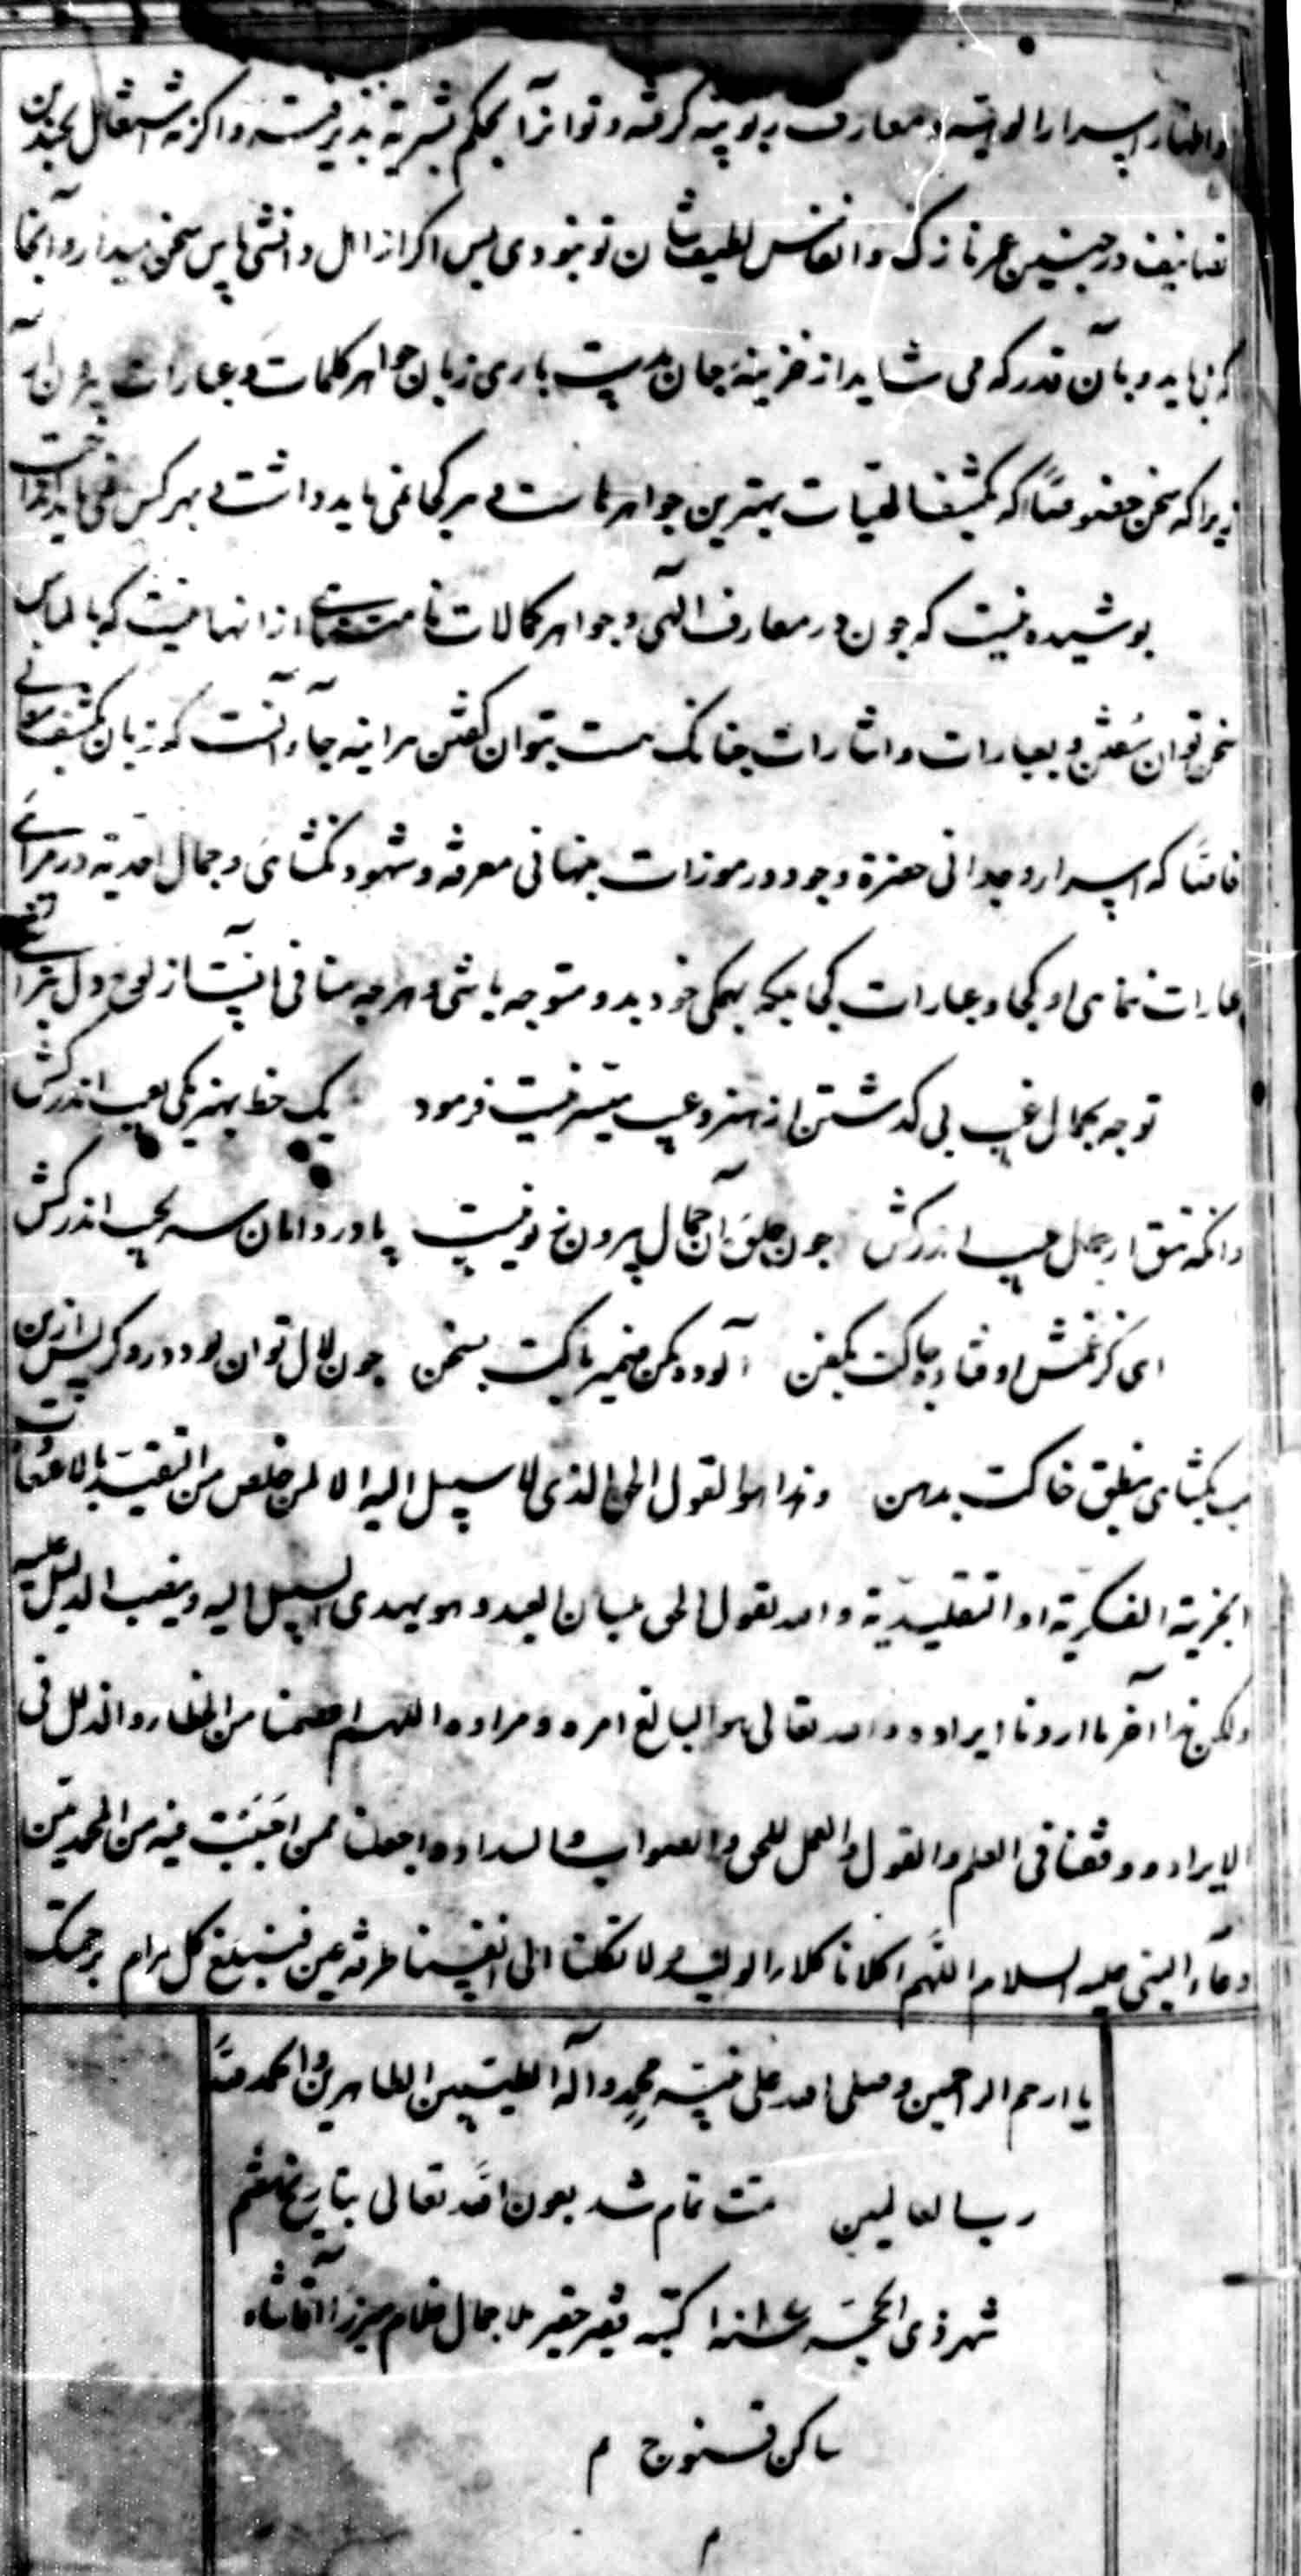 و اظهار اسرار الوهیته و معارف ربوبیته گرفته و تو آنرا بحکم بشریة پذیرفته و اگر نه اشتغال بچندین
تصانیف در چنین عمر نازک و انفاس لطیف شان تو نبودی پس اگر از اهل دانشی پاس سخن میدار و آنجا
که نباید و بآن قدر که می شاید از خزینه جان بدست یاری زبان جواهر کلمات و عبارات بیرون آر
زیرا که سخن خصوصًا که کشفیات بهترین جواهرهاست بهر کجا نمی باید داشت بهر کس نمی باید انداخت
پوشیده نیست که چون در معارف الهی و جواهر کمالات نامتناهی از انها نیست که بالماس
سخن توان سفتن و بعبارات و اشارات چنانک هست بتوان گفتن هر اینه جاء آنست که زبان کشف
خاصًا که اسرار وجدانی حضرة وجود و رموزات پنهانی معرفة و شهود نگشائی و جمال احدیة در مرائی
عبارات ننمای او کجا و عبارات کجا بلکه بهمکی خود بدو متوجه باشی و هر چه منافی آنست از لوح دل بتراشی
توجه بجمال غیب بی گذشتن از هنر و عیب میسر نیست فرمود یک خط بهنر یکی بعیب اندر کش
وانگه تتق از جمال غیب اندر کش چون جلوه آن جمال بیرون ز تو نیست پا در دامان سر بجیب اندر کش
ای کز غمش اوفتاده چاکت بکفن آلوده مکن ضمیر پاکت بسخن چون لال توان بود درو گر پس ازین
لب بکشای بنطق خاکت بدهن و هذا هو القول الحق الذی لا سبیل الیه الا لمن خلص من التقید بالاعتقادات
الجزیة الفکریة او التقلیدیة و الله یقول الحق بلسان العبد و هو یهدی السبیل الیه و ینصب الدلیل علیه
ولکن هذا آخر ما اردنا ایراده و الله تعالی هو البالغ امره و مراده اللهم اعصمنا من الخطاء و الزلل فی
الایراد و وفقنا فی العلم و القول و العمل للحق و الصواب و السداد و اجعلنا ممن اجبت فیه من المحمدیین
دعاء النبی علیه السلام اللهم اکلانا کلاءة الولید و لا تکلنا الی انفسنا طرفة عین فنبلغ کل مرام برحمتک
یا ارحم الراحمین و صلی الله علی نبیه محمد و آله الطیبین الطاهرین و الحمد لله
رب العالمین تمت تمام شد بعون الله تعالی بتاریخ هفتم
شهر ذی الحجه کتبه فقیر حقیر ملا جمال غلام میرزا آقاشاه
ساکن قنوج م
م